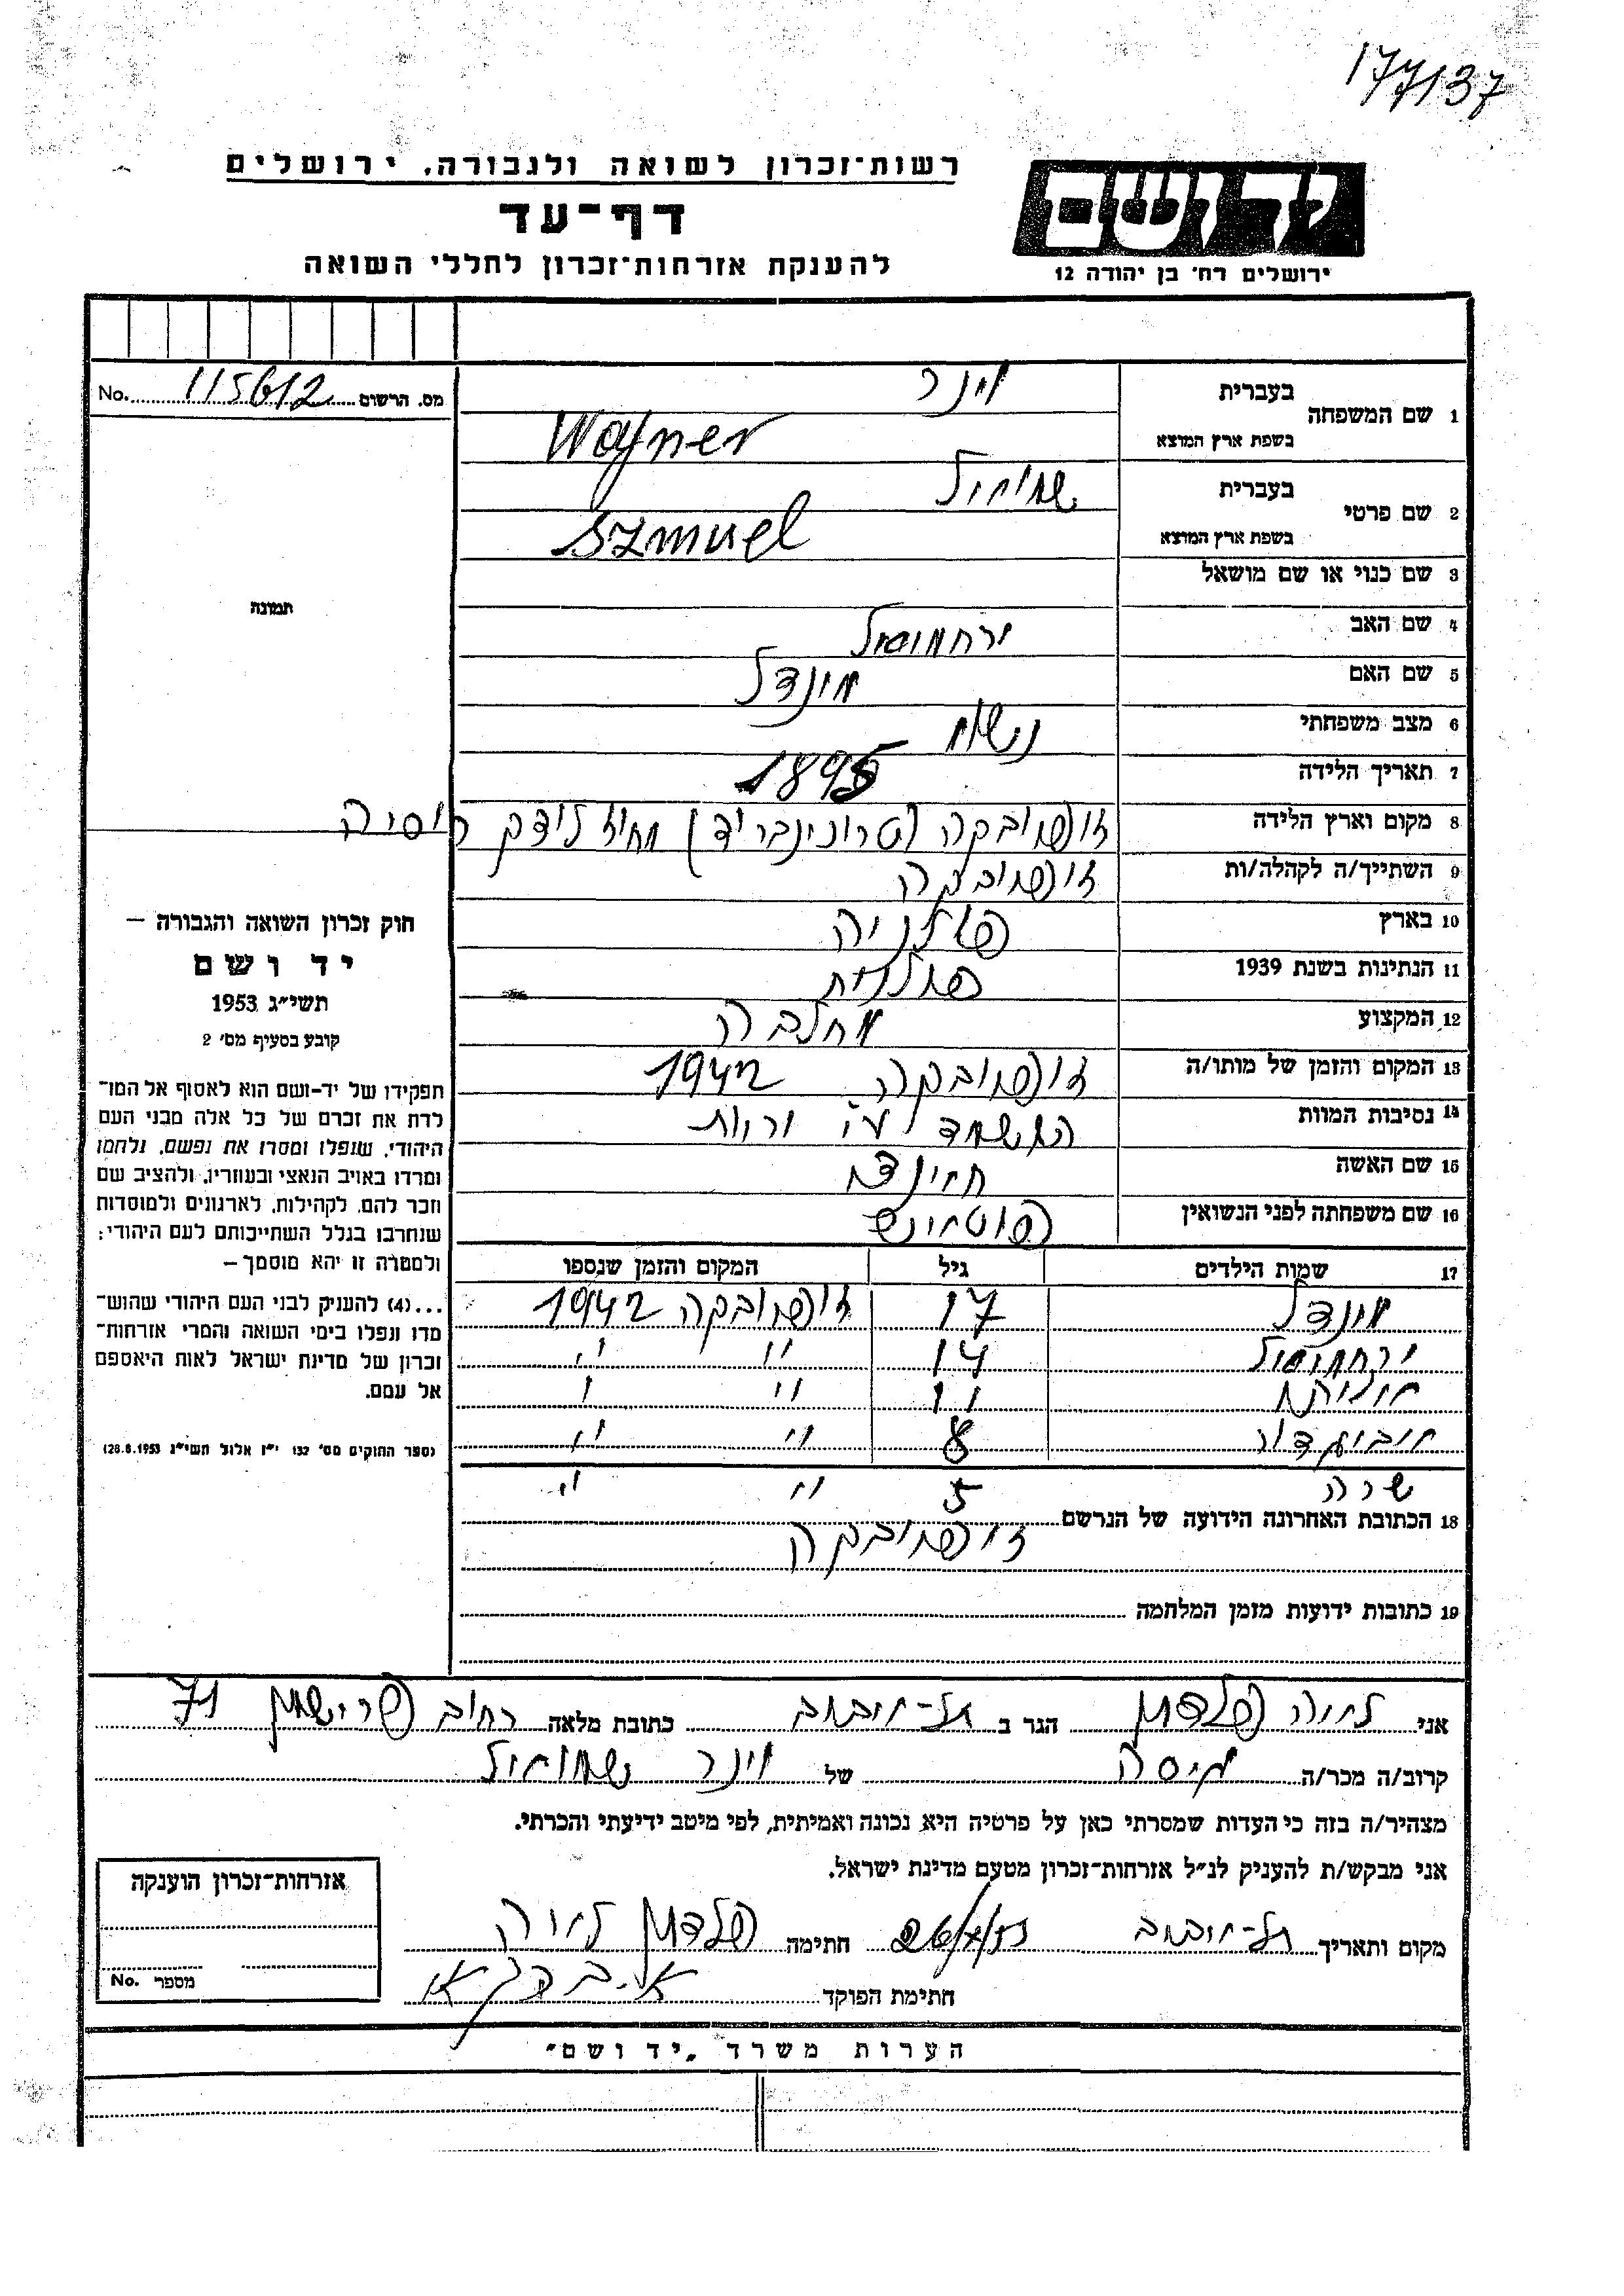 177137
רשות־זכרון לשואה ולגבורה, ירושלים
יד ושם
דף־עד
להענקת אזרחות־זכרון לחללי השואה
ירושלים רח׳ בן יהודה 12
מס. הרשום 115612 No.
1 שם המשפחה
בעברית וינר
בשפת ארץ המוצא Wajner
2 שם פרטי
בעברית שמואל
בשפת ארץ המוצא Szmuel
3 שם כנוי או שם מושאל
4 שם האב ירחמיאל
5 שם האם מינדל
6 מצב משפחתי נישא
7 תאריך הלידה 1895
8 מקום וארץ הלידה זופיובקה (טרוכינבריד) מחוז לוצק רוסיה
9 השתייך/ה לקהלה/ות זופיובקה
10 בארץ פולניה
11 הנתינות בשנת 1939 פולנית
12 המקצוע מחלבה
13 המקום והזמן של מותו/ה זופיובקה 1942
14 נסיבות המוות הושמד ע״י יריות
15 שם האשה
16 שם משפחתה לפני הנשואין
17 שמות הילדים גיל המקום והזמן שנספו
מינדל 17 זופיובקה 1942
ירחמיאל 14 ״ ״
11 ״ ״
אביגדור 8 ״ ״
שרה 5 ״ ״
18 הכתובת האחרונה הידועה של הנרשם
זופיובקה
19 כתובות ידועות מזמן המלחמה
תמונה
חוק זכרון השואה והגבורה —
יד ושם
תשי״ג 1953
קובע בסעיף מס׳ 2
תפקידו של יד-ושם הוא לאסוף אל המו־
לדת את זכרם של כל אלה מבני העם
היהודי, שנפלו ומסרו את נפשם, נלחמו
ומרדו באויב הנאצי ובעוזריו, ולהציב שם
וזכר להם, לקהילות, לארגונים ולמוסדות
שנחרבו בגלל השתייכותם לעם היהודי;
ולמטרה זו יהא מוסמך —
...(4) להעניק לבני העם היהודי שהוש־
מדו ונפלו בימי השואה והמרי אזרחות־
זכרון של מדינת ישראל לאות היאספם
אל עמם.
(ספר החוקים מס׳ 132 י״ז אלול תשי״ג 28.8.1953)
אני לאה פלדמן הגר ב תל-אביב כתובת מלאה רחוב פרישמן 71
קרוב/ה מכר/ה גיסה של וינר שמואל
מצהיר/ה בזה כי העדות שמסרתי כאן על פרטיה היא נכונה ואמיתית, לפי מיטב ידיעתי והכרתי.
אני מבקש/ת להעניק לנ״ל אזרחות־זכרון מטעם מדינת ישראל.
מקום ותאריך תל-אביב חתימה פלדמן לאה
חתימת הפוקד
אזרחות־זכרון הוענקה
מספר No.
הערות משרד „יד ושם״